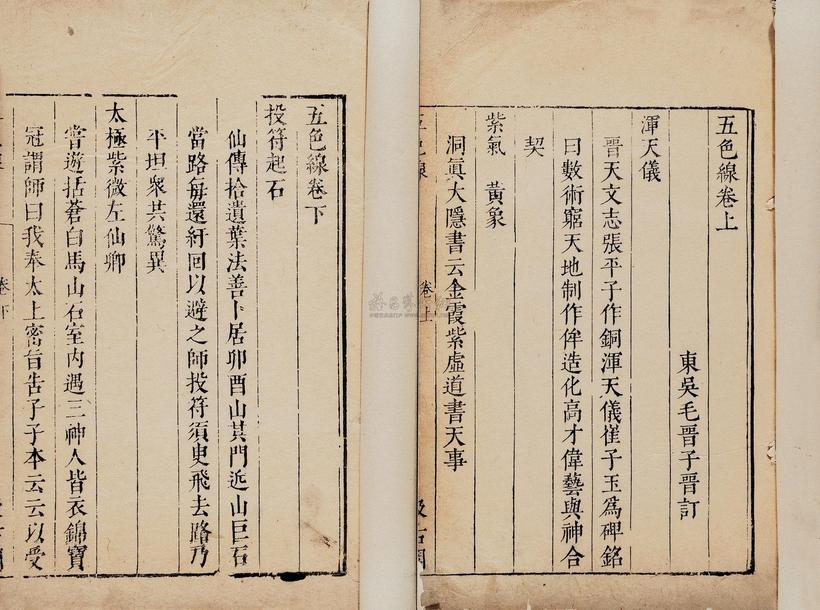 五色線卷上
東吳毛晉子晉訂
渾天儀
晉天文志張平子作銅渾天儀崔子玉爲碑銘
曰數術窮天地制作侔造化高才偉藝與神合
契
紫氣 黃象
洞眞大隱書云金霞紫虛道書天事
卷上
五色線卷下
投符起石
仙傳拾遺葉法善卜居卯酉山其門近山巨石
當路每還紆回以避之師投符須臾飛去路乃
平坦衆共驚異
太極紫微左仙卿
嘗遊括蒼白馬山石室內遇三神人皆衣錦寶
冠謂師曰我奉太上密旨告子子本云云以受
卷下